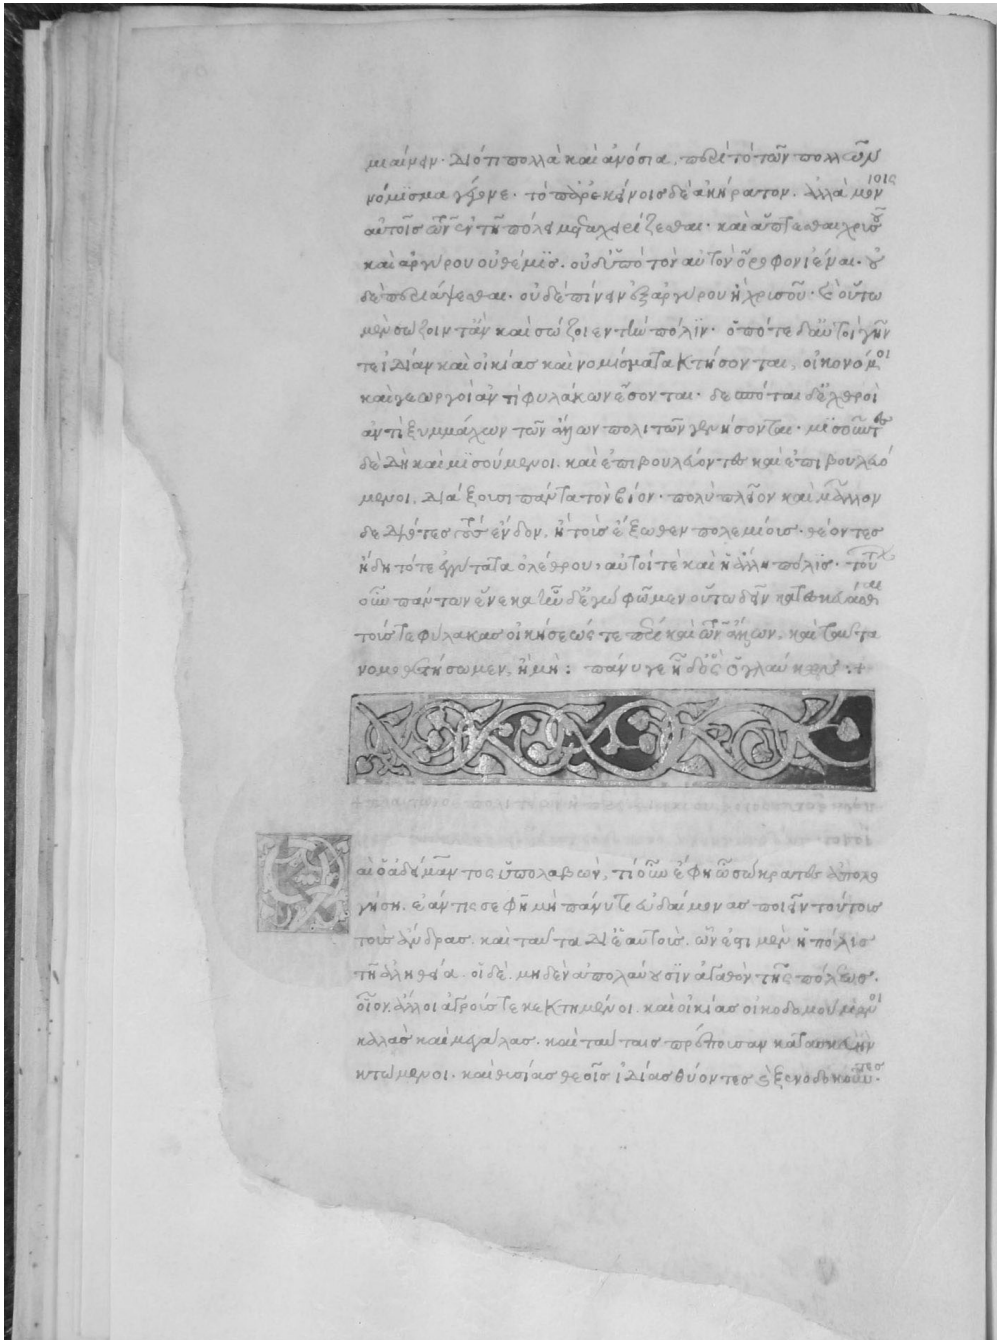 μιαίνειν· διότι πολλὰ καὶ ἀνόσια, περὶ τὸ τῶν πολλῶν
νόμισμα γέγονε· τὸ παρ' ἐκείνοις δὲ ἀκήρατον. ἀλλὰ μόνοις
αὐτοῖς τῶν ἐν τῇ πόλει μεταχειρίζεσθαι· καὶ ἅπτεσθαι χρυσοῦ
καὶ ἀργύρου οὐ θέμις. οὐδ' ὑπὸ τὸν αὐτὸν ὄροφον ἰέναι. οὐ
δὲ περιάψεσθαι. οὐδὲ πίνειν ἐξ ἀργύρου ἢ χρισοῦ· καὶ οὕτω
μὲν σώζοιντ' ἂν καὶ σώζοιεν τὴν πόλιν· ὁπότε δ' αὐτοὶ γῆν
τε ἰδίαν καὶ οἰκίας καὶ νομίσματα κτήσονται, οἰκονόμοι
καὶ γεωργοὶ ἀντὶ φυλάκων ἔσονται· δεσπόται δ' ἐχθροὶ
ἀντὶ ξυμμάχων τῶν ἄλλων πολιτῶν γενήσονται· μισοῦντες
δὲ δὴ καὶ μισούμενοι. καὶ ἐπιβουλεύοντες καὶ ἐπιβουλευό
μενοι, διάξουσι πάντα τὸν βίον· πολὺ πλείον καὶ μᾶλλον
δεδιότες τοὺς ἔνδον, ἢ τοὺς ἔξωθεν πολεμίους· θέοντες
ἤδη τότε ἐγγύτατα ὀλέθρου, αὐτοί τε καὶ ἡ ἄλλη πόλις· τούτων
οὖν πάντων ἕνεκα ἦν δ' ἐγὼ φῶμεν οὕτω δεῖν κατεσκευάσθαι
τοὺς φύλακας οἰκήσεώς τε πέρι καὶ τῶν ἄλλων, καὶ ταῦτα
νομοθετήσωμεν, ἢ μή: πάνυ γε ἦ δ' ὃς ὁ γλαύκων :+
αὶ ὁ ἀδείμαντος ὑπολαβών, τί οὖν ἔφη ὦ σώκρατες ἀπολο
γήσῃ. ἐάν τίς σε φῇ μὴ πάνυ τι εὐδαίμονας ποιεῖν τούτους
τοὺς ἄνδρας. καὶ ταῦτα δι' ἑαυτούς. ὧν ἔστι μὲν ἡ πόλις
τῇ ἀληθείᾳ. οἱ δὲ. μηδὲν ἀπολαύουσιν ἀγαθὸν τῆς πόλεως.
οἷον ἄλλοι ἀγρούς τε κεκτημένοι. καὶ οἰκίας οἰκοδομούμενοι
καλὰς καὶ μεγάλας. καὶ ταύταις πρέπουσαν κατασκευὴν
κτώμενοι. καὶ θυσίας θεοῖς ἰδίας θύοντες καὶ ξενοδοκοῦντες.